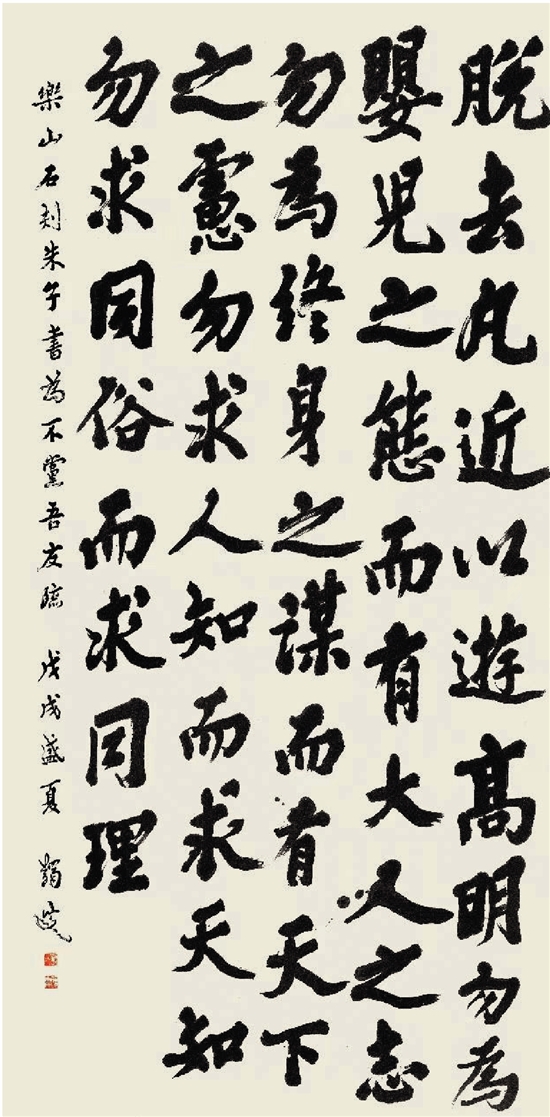 脱去凡近以遊高明勿為
嬰兒之態而有大人之志
勿為終身之謀而有天下
之慮勿求人知而求天知
勿求同俗而求同理
樂山石刻朱子書為不黨吾友臨 戊戌盛夏